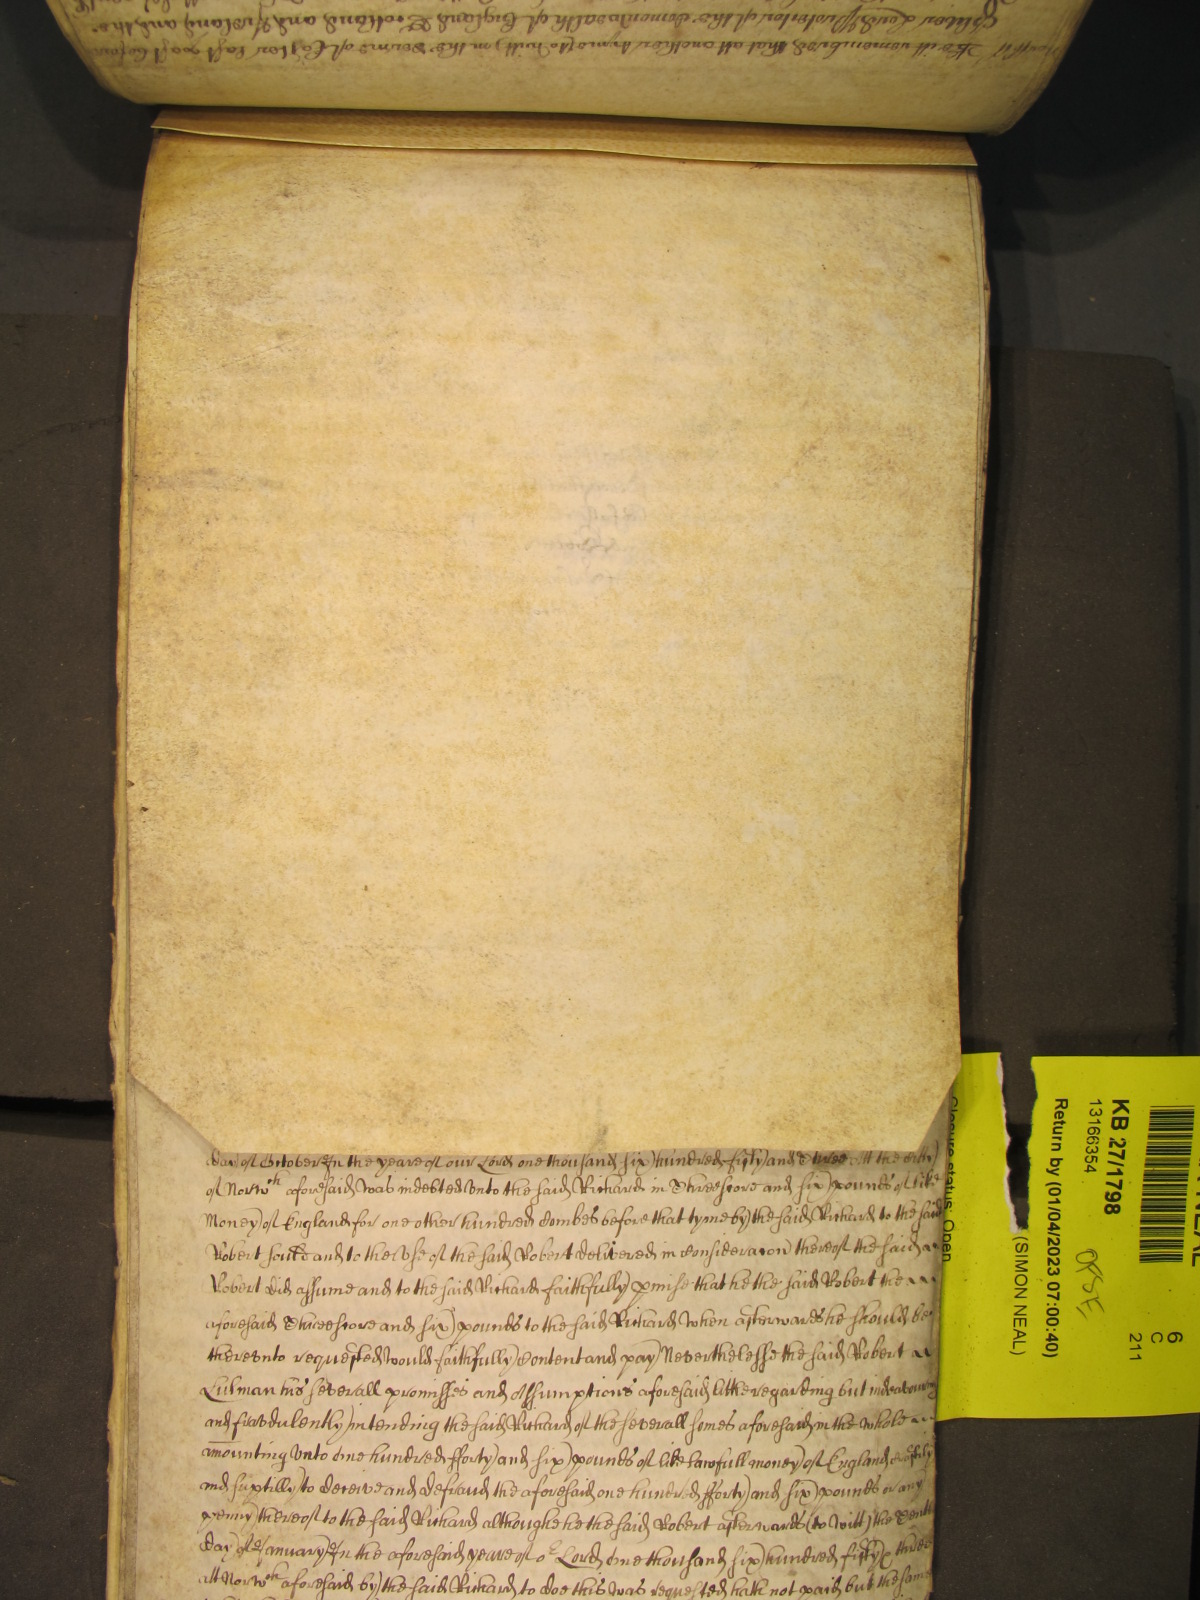 Be it remembred that att another tyme (to witt) in the terme of Easter last past before
Oliver Lord Protector of the Comonwealth of England Scotland and Ireland and the
day of October In the yeare of our Lord one thousand six hundred fifty and three Att the Citty
of Norwch aforesaid was indebted unto the said Richard in Threescore and six pounds of like
Money of England for one other hundred Combes before that tyme by the said Richard to the said
Robert sould and to the Use of the said Robert delivered in consideracon thereof the said
Robert did assume and to the said Richard faithfully pmise that he the said Robert the
aforesaid Threescore and six pounds to the said Richard when afterwards he should be
thereunto requested would faithfully Content and pay Neverthelesse the said Robert
Lulman his severall promisses and Assumptions aforesaid litle regarding but indeavouring
and fraudulently intending the said Richard of the severall somes aforesaid in the whole
amounting unto one hundred fforty and six pounds of like lawfull money of England craftily
and suptilly to deceive and defraud the aforesaid one hundred fforty and six pounds or any
penny thereof to the said Richard althoughe he the said Robert afterwards (to witt) the Tenth
day of January In the aforesaid yeare of or Lord one thousand six hundred fifty & three
att Norwch aforesaid by the said Richard to doe this was requested hath not paid but the same
KB 27/1798
13166354
Return by (01/04/2023 07:00:40)
(SIMON NEAL)
Closure status: Open
6
C
211